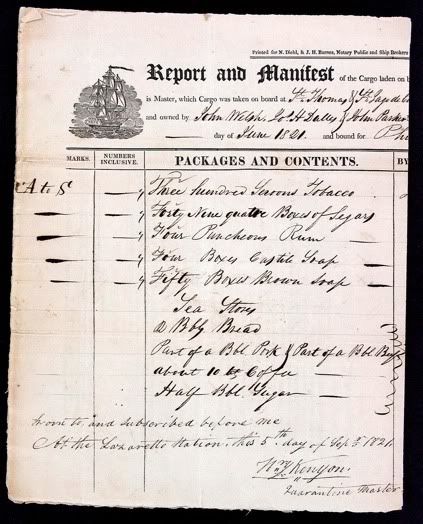 Printed for N. Diehl, & J. H. Barnes, Notary Public and Ship Brokers
Report and Manifest of the Cargo laden on b
is Master, which Cargo was taken on board at St. Thomas St. Jago de Cu
and owned by John Welsh, Jos H Dalley John Parker
day of June 1821. and bound for Ph
MARKS. NUMBERS INCLUSIVE. PACKAGES AND CONTENTS. BY
A to S Three hundred Tobacco
Forty Nine quarter Boxes of Segars
Four Puncheons Rum
Four Boxes Castile Soap
Fifty Boxes Brown Soap
Sea Stores
2 Bbls Bread
Part of a Bbl Pork Part of a Bbl Beef
about 10 Coffee
Half Bbl Sugar
Sworn to, and subscribed before me
At the Lazaretto Station, this 5th day of Sept 1821
Kenyon
Quarantine Master